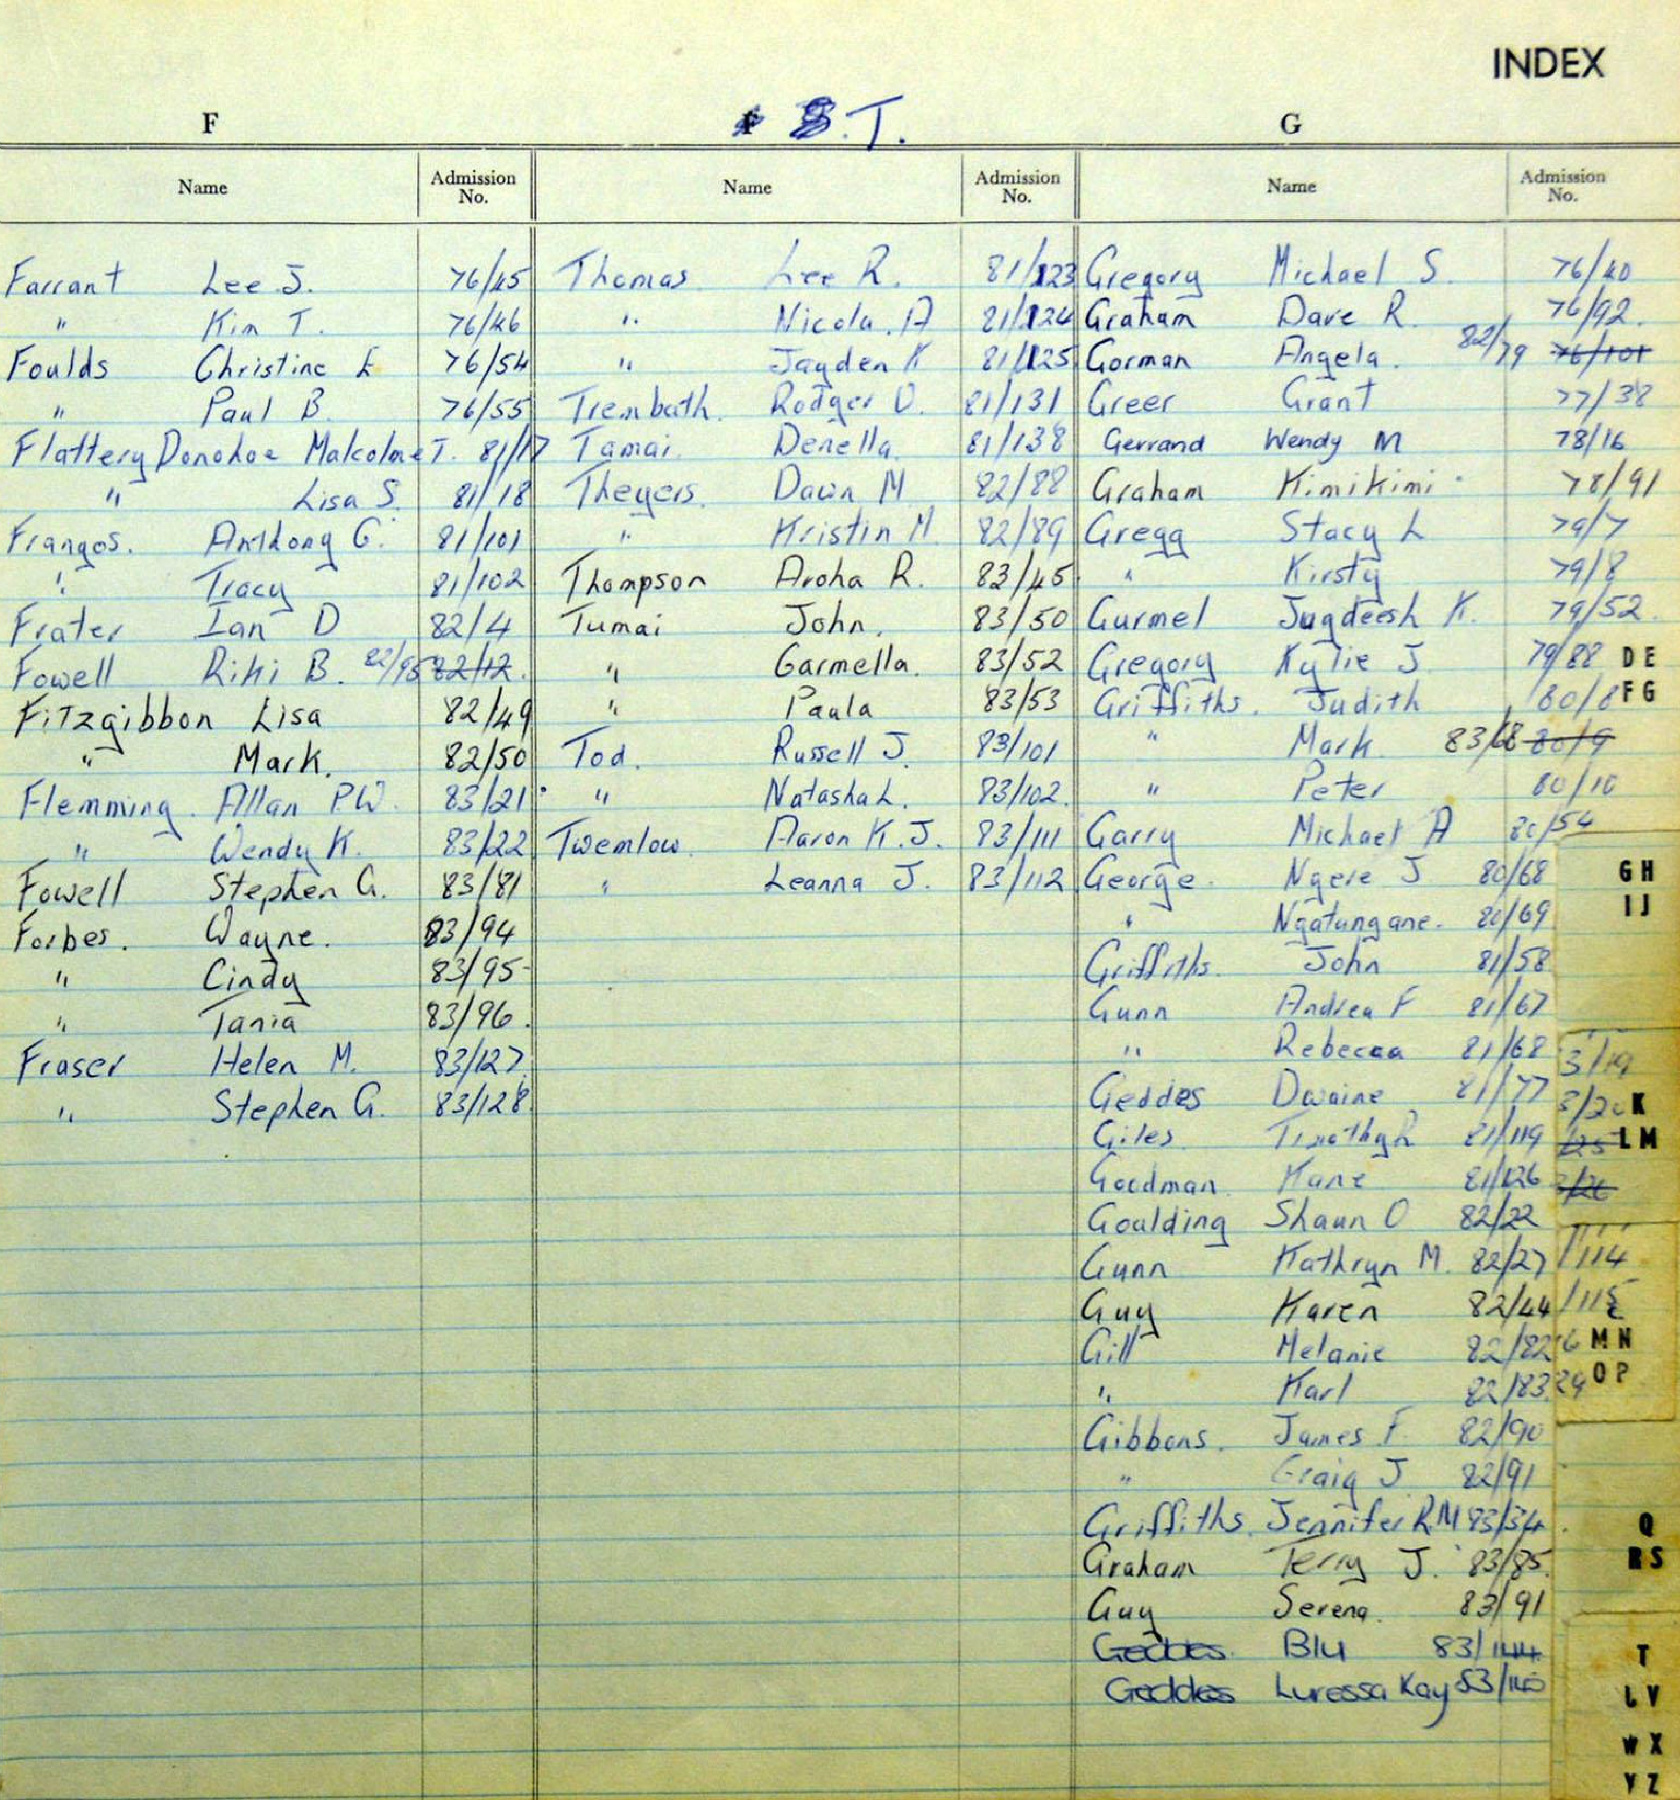 INDEX
F
T.
G
Name
Admission No.
Name
Admission No.
Name
Admission No.
Farrant Lee J. 76/45
" Kim T. 76/46
Foulds Christine E 76/54
" Paul B. 76/55
Flattery Donohoe Malcolme T. 81/17
" Lisa S. 81/18
Frangos. Anthony G. 81/101
" Tracy 81/102
Frater Ian D 82/4
Fowell Riki B. 82/95 82/12.
Fitzgibbon Lisa 82/49
" Mark. 82/50
Flemming. Allan P.W. 83/21
" Wendy K. 83/22
Fowell Stephen G. 83/81
Forbes. Wayne. 83/94
" Cindy 83/95
" Tania 83/96.
Fraser Helen M. 83/127
" Stephen G. 83/128
Thomas Lee R. 81/123
" Nicola. A 81/124
" Jayden K 81/125
Trembath. Rodger D. 81/131
Tamai. Denella. 81/138
Theyers. Dawn M 82/88
" Kristin M. 82/89
Thompson Aroha R. 83/45
Tumai John. 83/50
" Garmella. 83/52
" Paula 83/53
Tod. Russell J. 83/101
" Natasha L. 83/102.
Twemlow. Aaron K.J. 83/111
" Leanna J. 83/112
Gregory Michael S. 76/40
Graham Dave R. 76/92.
Gorman Angela. 82/79 76/101
Greer Grant 77/38
Gerrand Wendy M 78/16
Graham Kimikimi 78/91
Gregg Stacy L 79/7
" Kirsty 79/8
Gurmel Jugdeesh K. 79/52
Gregory Kylie J 79/88
Griffiths. Judith 80/8
" Mark 83/68 80/9
" Peter 80/10
Garry Michael A 80/54
George. Ngere J 80/68
" Ngatungane. 80/69
Griffiths. John 81/58
Gunn Andrea F 81/67
" Rebecca 81/68
Geddes Dwaine 81/77
Giles Timothy R 81/119
Goodman Kane 81/126
Goulding Shaun O 82/22
Gunn Kathryn M. 82/27
Guy Karen 82/44
Gill Melanie 82/82
" Karl 82/83
Gibbons. James F. 82/90
" Craig J 82/91
Griffiths. Jennifer R.M 83/34
Graham Terry J. 83/85.
Guy Serena. 83/91
Geddes. Blu 83/144
Geddes Luressa Kay
3/19
3/20
/114
/115
D E
F G
G H
I J
K
L M
M N
O P
Q
R S
T
W X
Y Z